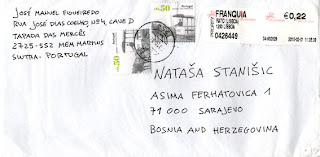 JOSÉ MANUEL FIGUEIREDO
RUA JOSÉ DIAS COELHO Nº4, CAVE D
TAPADA DAS MERCÊS
2725-552 MEM MARTINS
SINTRA - PORTUGAL
Portugal
€0.50
Portugal
€0.50
FRANQUIA
NATO LISBOA
1200 LISBOA
0426449
€0,22
NATAŠA STANIŠIĆ
ASIMA FERHATOVICA 1
71000 SARAJEVO
BOSNIA AND HERZEGOVINA